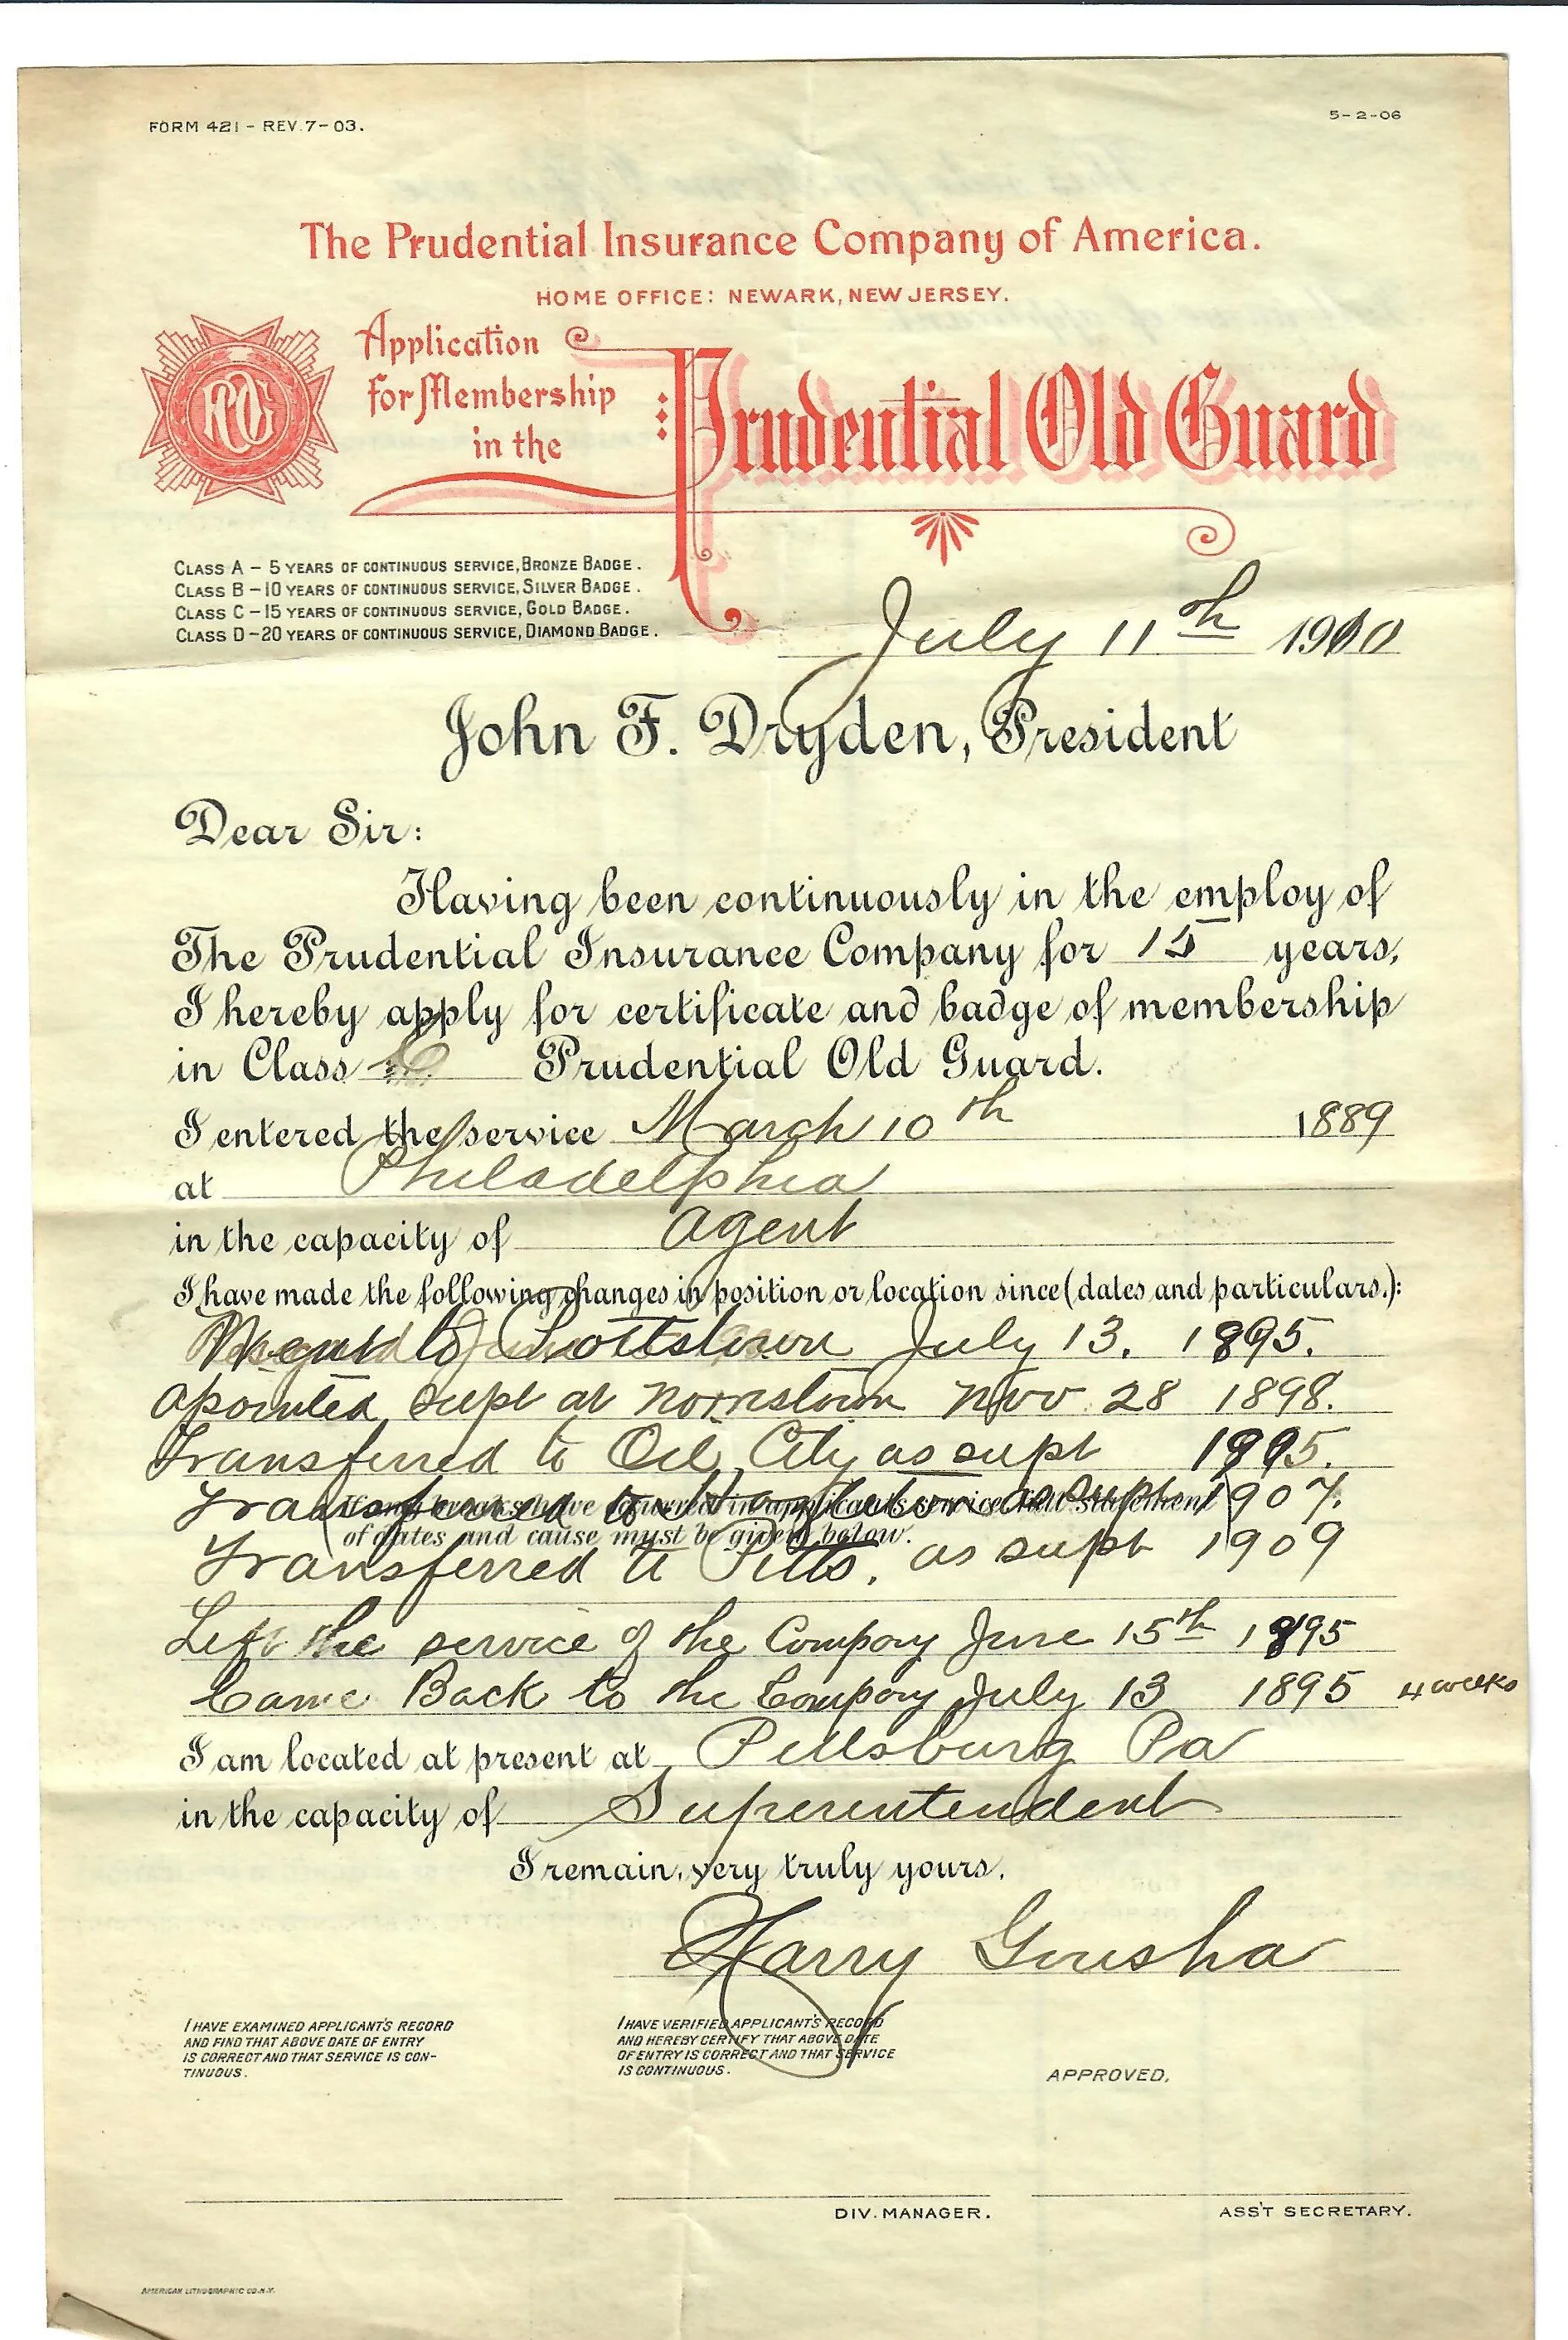 FORM 421 - REV. 7-03.
5-2-06
The Prudential Insurance Company of America.
HOME OFFICE: NEWARK, NEW JERSEY.
Application
for Membership
in the
Prudential Old Guard
CLASS A - 5 YEARS OF CONTINUOUS SERVICE, BRONZE BADGE.
CLASS B - 10 YEARS OF CONTINUOUS SERVICE, SILVER BADGE.
CLASS C - 15 YEARS OF CONTINUOUS SERVICE, GOLD BADGE.
CLASS D - 20 YEARS OF CONTINUOUS SERVICE, DIAMOND BADGE.
July 11th 1910
John F. Dryden, President
Dear Sir:
Having been continuously in the employ of
The Prudential Insurance Company for 15 years,
I hereby apply for certificate and badge of membership
in Class Prudential Old Guard.
I entered the service March 10th 1889
at Philadelphia
in the capacity of agent
I have made the following changes in position or location since (dates and particulars.):
Went to Pottstown July 13. 1895.
apointed supt at Norristown Nov 28 1898.
Transferred to Oil City as supt
Transferred to as supt 1907.
(If any breaks have occurred in applicant's service full statement
of dates and cause must be given below.
Transferred to Pitts. as supt 1909
Left the service of the Company June 15th 1895
Came Back to the Company July 13 1895 4 weeks
I am located at present at Pittsburg Pa
in the capacity of Superentendent
I remain, very truly yours.
Harry Gousha
I HAVE EXAMINED APPLICANT'S RECORD
AND FIND THAT ABOVE DATE OF ENTRY
IS CORRECT AND THAT SERVICE IS CON-
TINUOUS.
I HAVE VERIFIED APPLICANT'S RECORD
AND HEREBY CERTIFY THAT ABOVE DATE
OF ENTRY IS CORRECT AND THAT SERVICE
IS CONTINUOUS.
APPROVED,
DIV. MANAGER.
ASS'T SECRETARY.
AMERICAN LITHOGRAPHIC CO. N.Y.